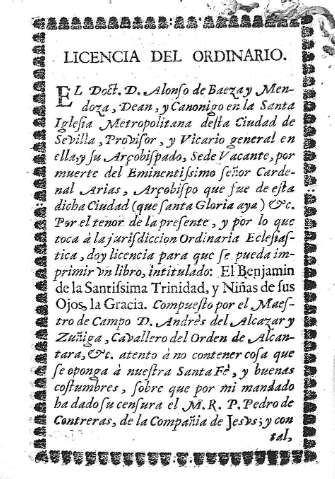 LICENCIA DEL ORDINARIO.
EL Doct. D. Alonso de Baeza y Men-
doza, Dean, y Canonigo en la Santa
Iglesia Metropolitana desta Ciudad de
Sevilla, Provisor, y Vicario general en
ella, y su Arçobispado, Sede Vacante, por
muerte del Eminentissimo señor Carde-
nal Arias, Arçobispo que fue de esta
dicha Ciudad (que santa Gloria aya) &c.
Por el tenor de la presente, y por lo que
toca à la jurisdiccion Ordinaria Eclesias-
tica, doy licencia para que se pueda im-
primir vn libro, intitulado: El Benjamin
de la Santissima Trinidad, y Niñas de sus
Ojos, la Gracia. Compuesto por el Maes-
tro de Campo D. Andrès del Alcazar y
Zuñiga, Cavallero del Orden de Alcan-
tara, &c. atento à no contener cosa que
se oponga à nuestra Santa Fè, y buenas
costumbres, sobre que por mi mandado
ha dado su censura el M. R. P. Pedro de
Contreras, de la Compañia de Jesvs; y con
tal,